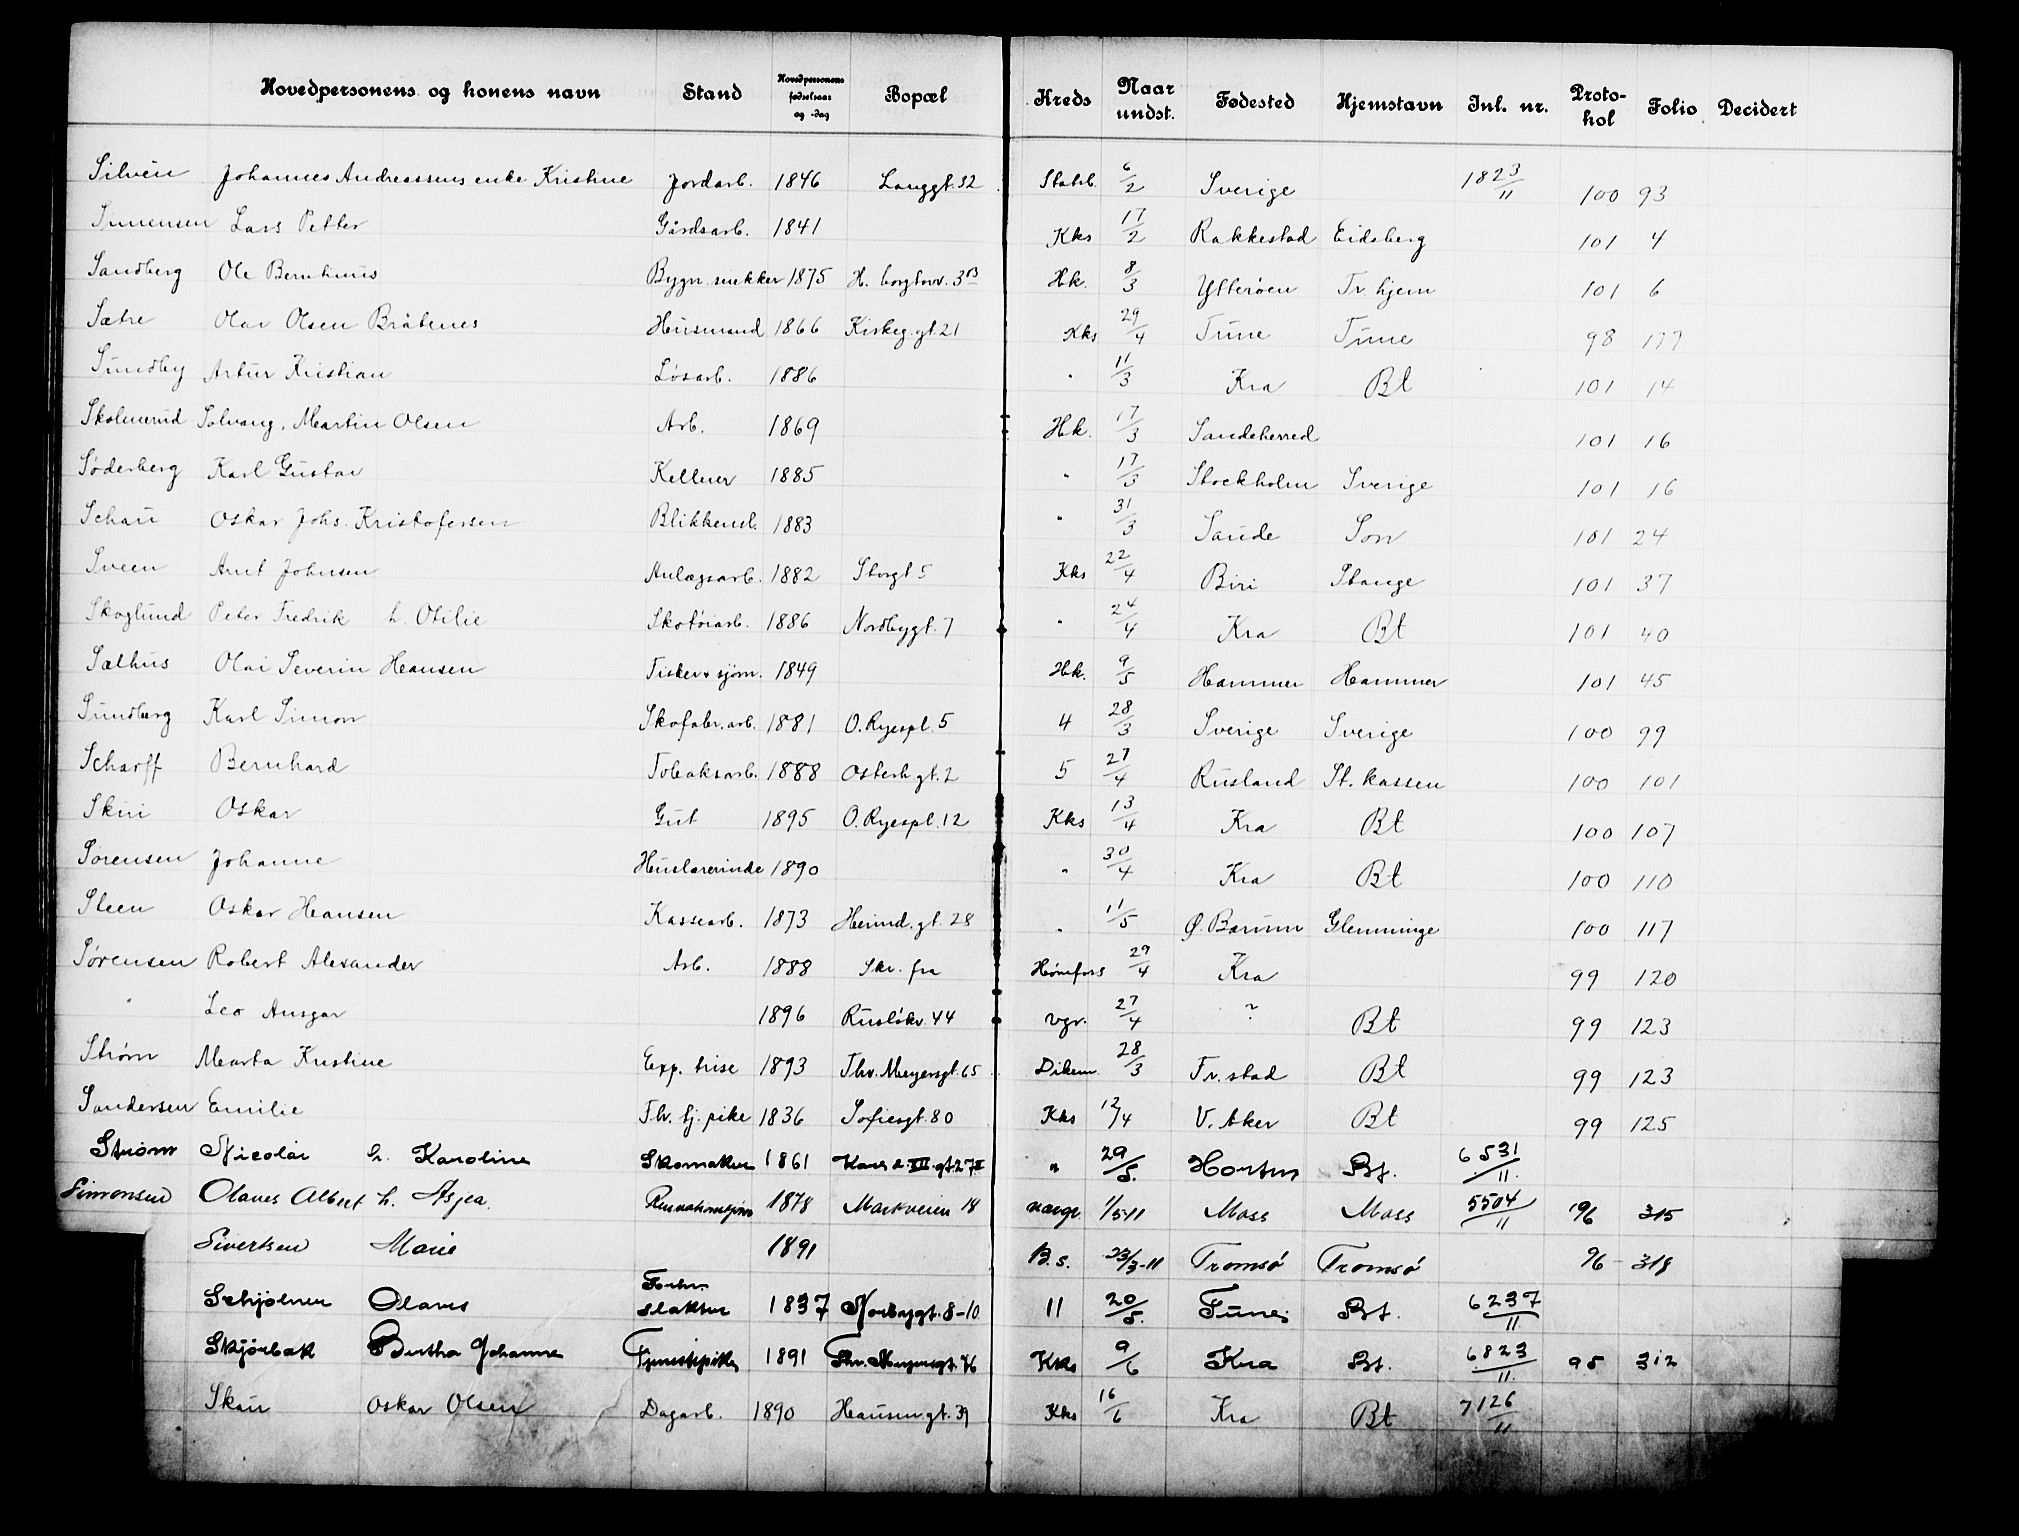 Hovedpersonens og konens navn Stand Hovedpersonens fødselsaar og -dag Bopæl Kreds Naar undst. Fødested Hjemstavn Inl. nr. Protokol Folio Decidert
Silvén Johannes Andreassens enke Kristine Jordarb. 1846 Langgt. 32 Stabsb. 6/2 Sverige 1823/11 100 93
Simensen Lars Petter Gårdsarb. 1841 Kks 17/2 Rakkestad Eidsberg 101 4
Sandberg Ole Bernhinus Bygn. snekker 1875 H. borgtorv. 3B Hk. 8/3 Ytterøen Tr. hjem 101 6
Sætre Olai Olsen Bråtenes Husmand 1866 Kirkeg. gt. 21 Kks 29/4 Tune Tune 98 177
Sundby Artur Kristian Løsarb. 1886 " 11/3 Kra Bt 101 14
Skolmerud Solvang, Martin Olsen Arb. 1869 Hk. 17/3 Sandeherred 101 16
Søderberg Karl Gustav Kellner 1885 " 17/3 Stockholm Sverige 101 16
Schau Oskar Johs. Kristofersen Blikkensl. 1883 " 31/3 Sande Son 101 24
Sveen Arnt Johnsen Anlægsarb. 1882 Storgt 5 Kks 22/4 Biri Stange 101 37
Skoglund Peter Fredrik h. Otilie Skotøiarb. 1886 Nordbygt. 7 " 24/4 Kra Bt 101 40
Sælhus Olai Severin Hansen Fisker & sjøm. 1849 Hk. 9/5 Hammer Hammer 101 45
Sundberg Karl Simon Skofabr. arb. 1881 O. Ryespl. 5 4 28/3 Sverige Sverige 100 99
Scharff Bernhard Tobaksarb. 1888 Osterh. gt. 2 5 27/4 Rusland St. kassen 100 101
Skiri Oskar Gut 1895 O. Ryespl. 12 Kks 13/4 Kra Bt 100 107
Sørensen Johanne Huslærerinde 1890 " 30/4 Kra Bt 100 110
Steen Oskar Hansen Kassearb. 1873 Heimd. gt. 28 " 11/5 Ø. Bærum Glemminge 100 117
Sørensen Robert Alexander Arb. 1888 Skr. fra Hønefoss 29/4 Kra 99 120
" Leo Ansgar 1896 Rusløkv. 44 vgr. 27/4 ? Bt 99 123
Strøm Marta Kristine Exp. trise 1893 Thv. Meyersgt. 65 Dikem. 28/3 Fr. stad Bt 99 123
Sandersen Emilie Fhv. tj. pike 1836 Sofiesgt. 80 Kks 12/4 V. Aker Bt 99 125
Strøm Nicolai h. Karoline Skomaker 1861 Karl d. XII. gt. 27 II " 29/5. Horten Bt. 6531/11.
Simonsen Olaves Albert h. Asjea. 1878 Markveien 18 vaagr. 1/5-11 Moss Moss 5504/11 196 315
Sivertsen Marie 1891 B. s. 23/3-11 Tromsø Tromsø 96 318
Schjølner Olaves Forhv. slakter 1837 Norbygt. 8-10. 11 20/5. Tune Bt. 6237/11.
Skjørbæk Bertha Johanne Tjenestepike 1891 Thv. Meyersgt. 76 Kks 9/6 Kra Bt. 6823/11. 95 312
Skau Oskar Olsen Dagarb. 1890 Hausm. gt. 39 Kks 16/6 Kra Bt 7126/11